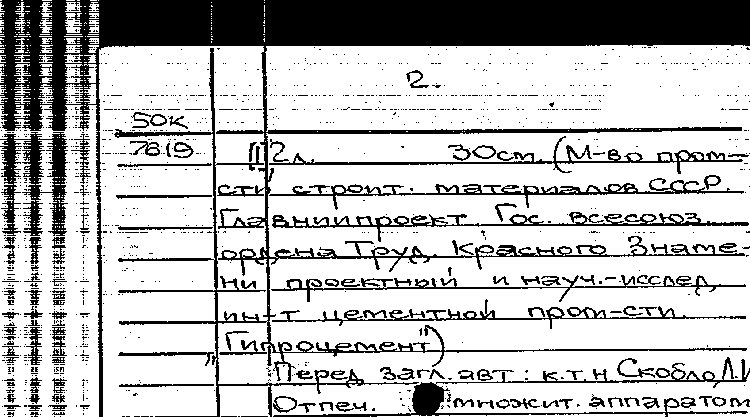 2.
50к
7819 [1] 2л. 30см. (М-во пром-
сти строит. материалов СССР.
Главниипроект. Гос. всесоюз.
ордена Труд. Красного Знаме-
ни проектный и науч.-исслед.
ин-т цементной пром-сти
"Гипроцемент")
Перед загл. авт.: к.т.н. Скобло, Л.И
Отпеч. множит. аппаратом